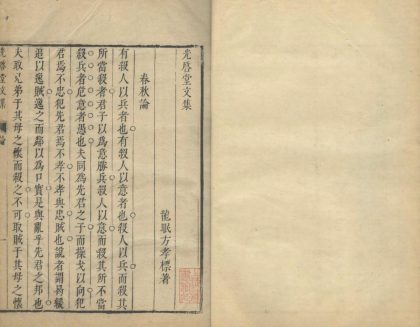 光啓堂文集
龍眠方孝標著
春秋論
有殺人以兵者也有殺人以意者也殺人以兵而殺其
所當殺者君子以為意勝兵殺人以意而殺其所不當
殺兵者危意者愚也夫同為先君之子而操戈以向犯
君焉不忠犯先君焉不孝不孝與忠賊也說者謂
退以逸賊還之而鄰以為口實是與亂乎先君之邦也
夫取兄弟于其母之懷而殺之不可取賊于其母之懷
光啓堂文集
論
一